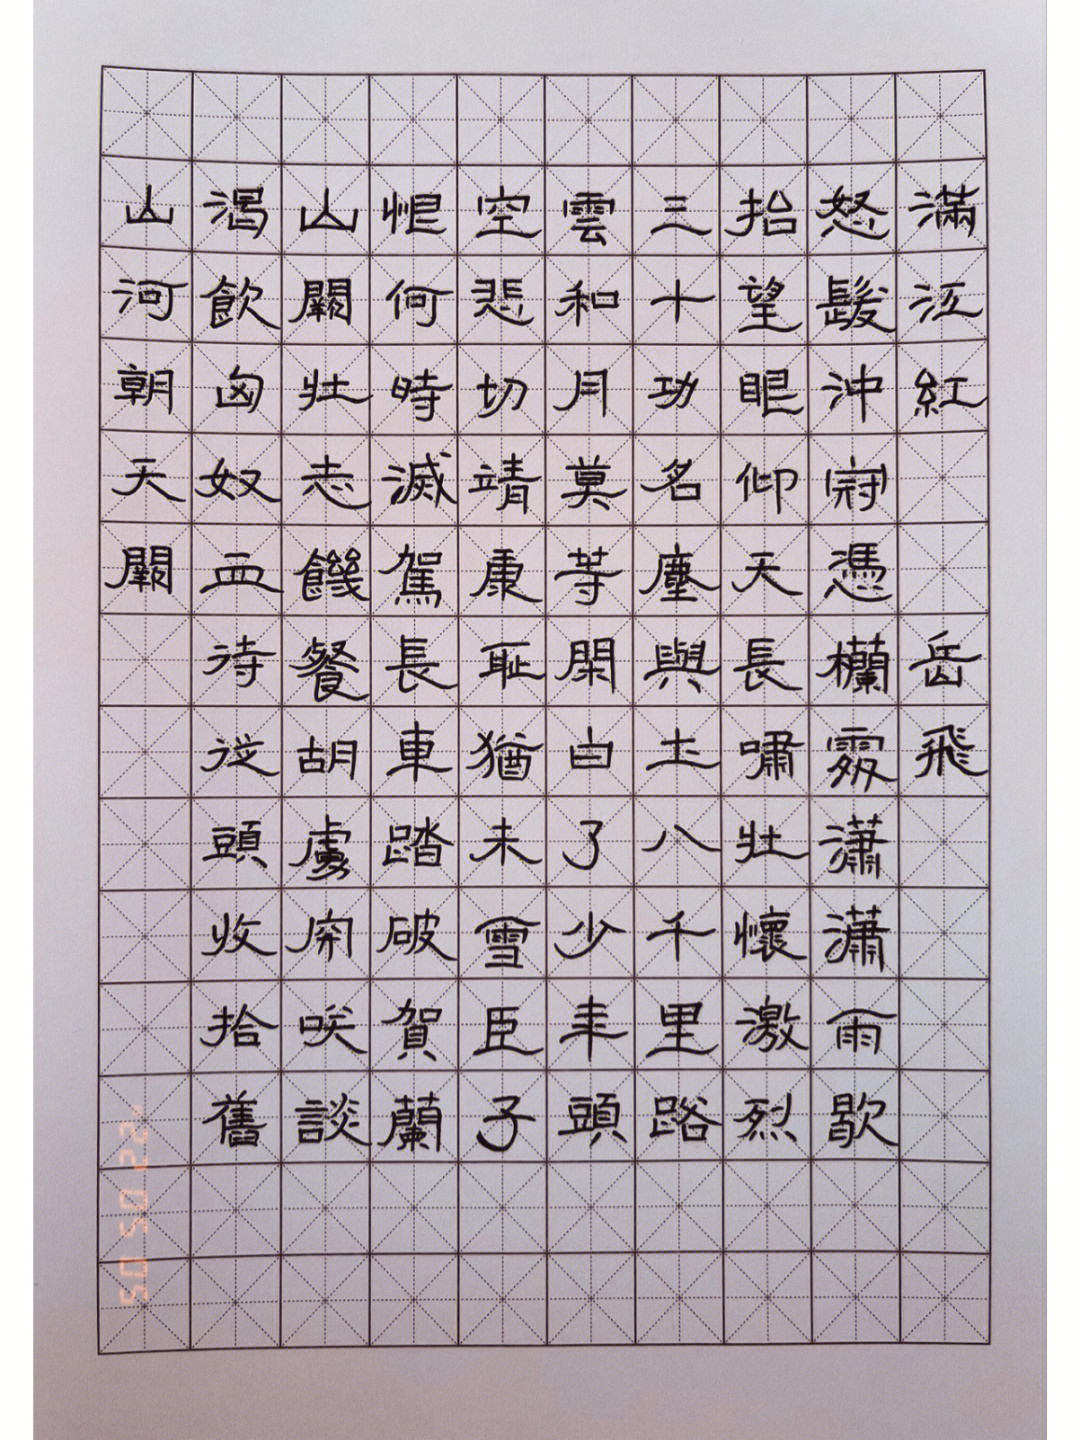 滿江紅 岳飛
怒髮沖冠憑欄處瀟瀟雨歇
抬望眼仰天長嘯壯懷激烈
三十功名塵與土八千里路
雲和月莫等閑白了少年頭
空悲切靖康恥猶未雪臣子
恨何時滅駕長車踏破賀蘭
山闕壯志饑餐胡虜肉笑談
渴飲匈奴血待從頭收拾舊
山河朝天闕
'22 05 05